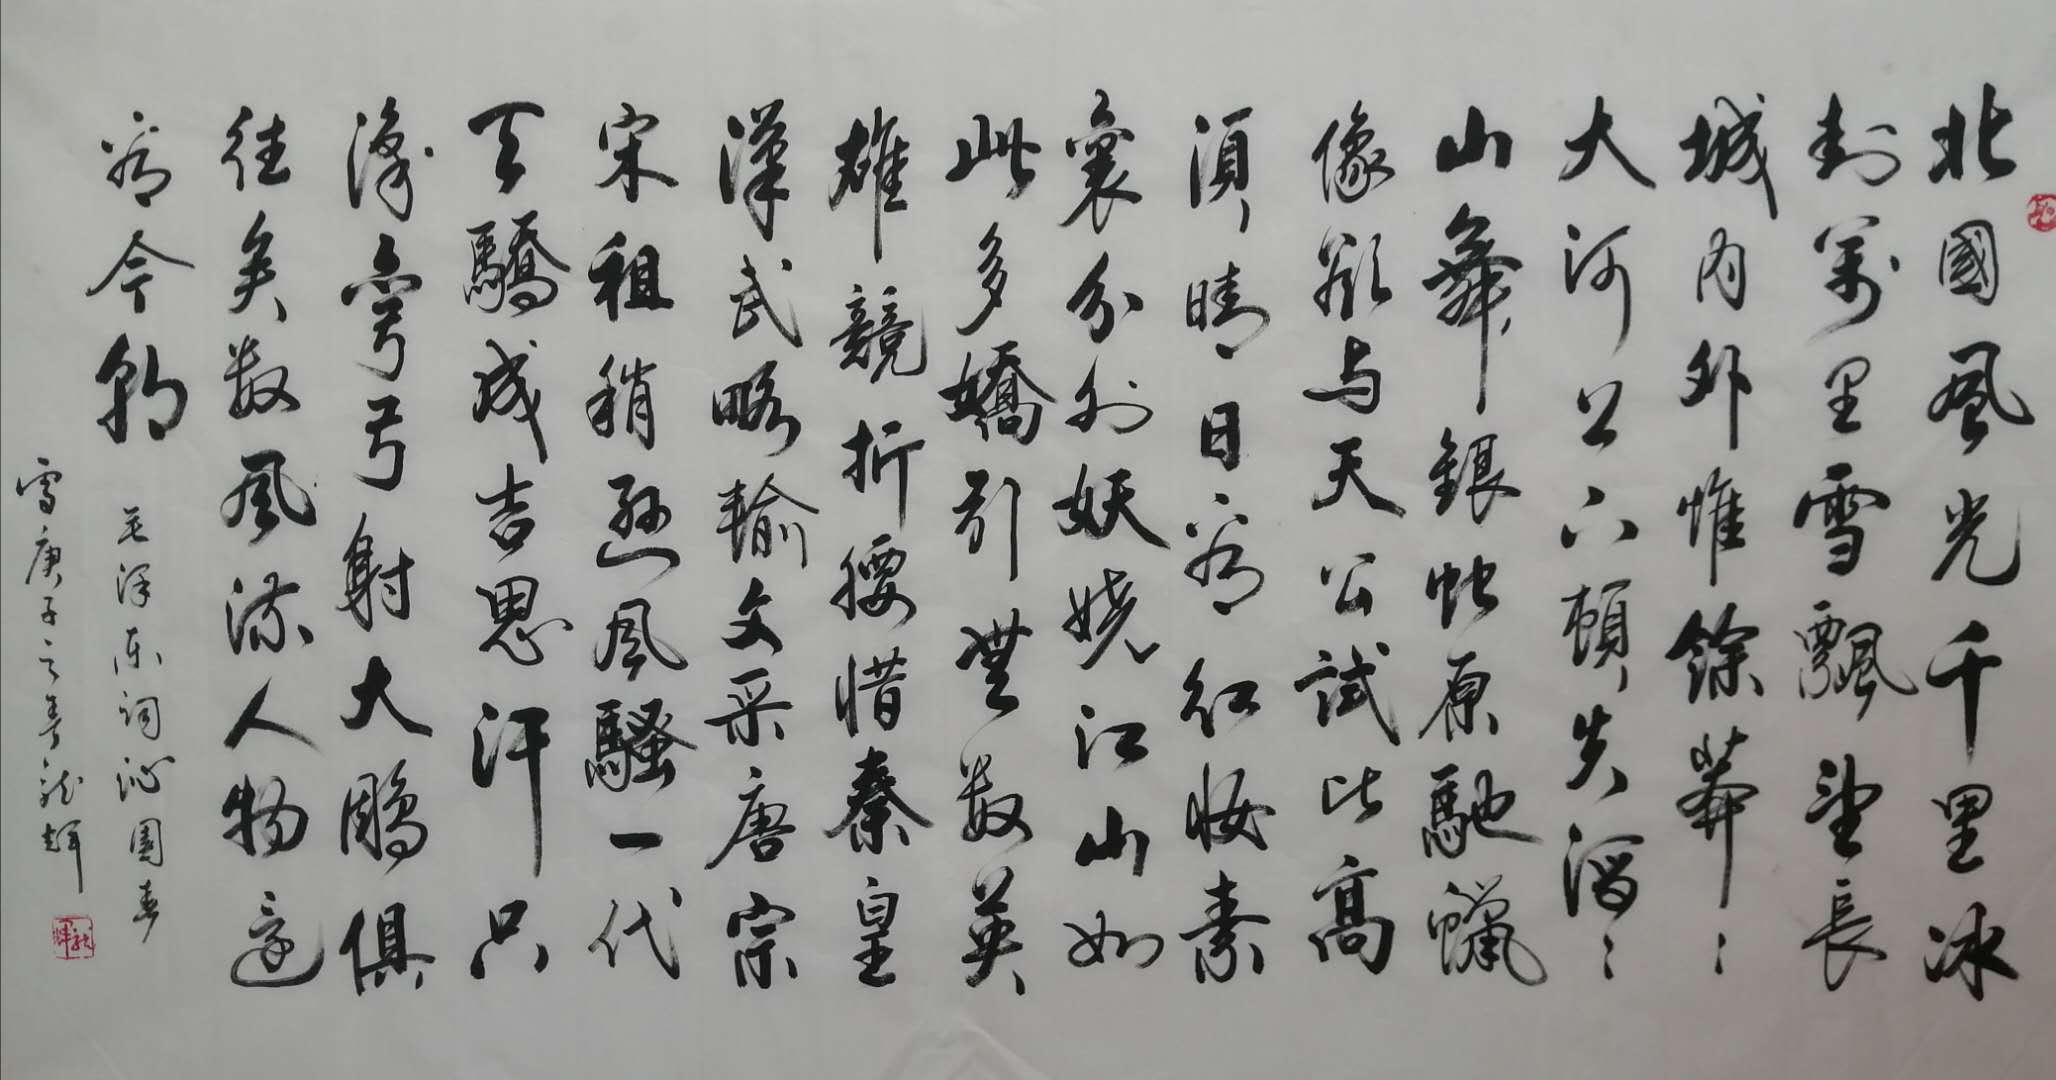 北國風光千里冰
封萬里雪飄望長
城内外惟餘莽〻
大河上下頓失滔〻
山舞銀蛇原馳蠟
像欲与天公試比高
須晴日看红妝素
裹分外妖娆江山如
此多嬌引無数英
雄競折腰惜秦皇
漢武略輸文采唐宗
宋祖稍遜風騷一代
天驕成吉思汗只
識彎弓射大鵰俱
往矣数風流人物還
看今朝
毛澤东詞沁園春
雪庚子之春龍輝